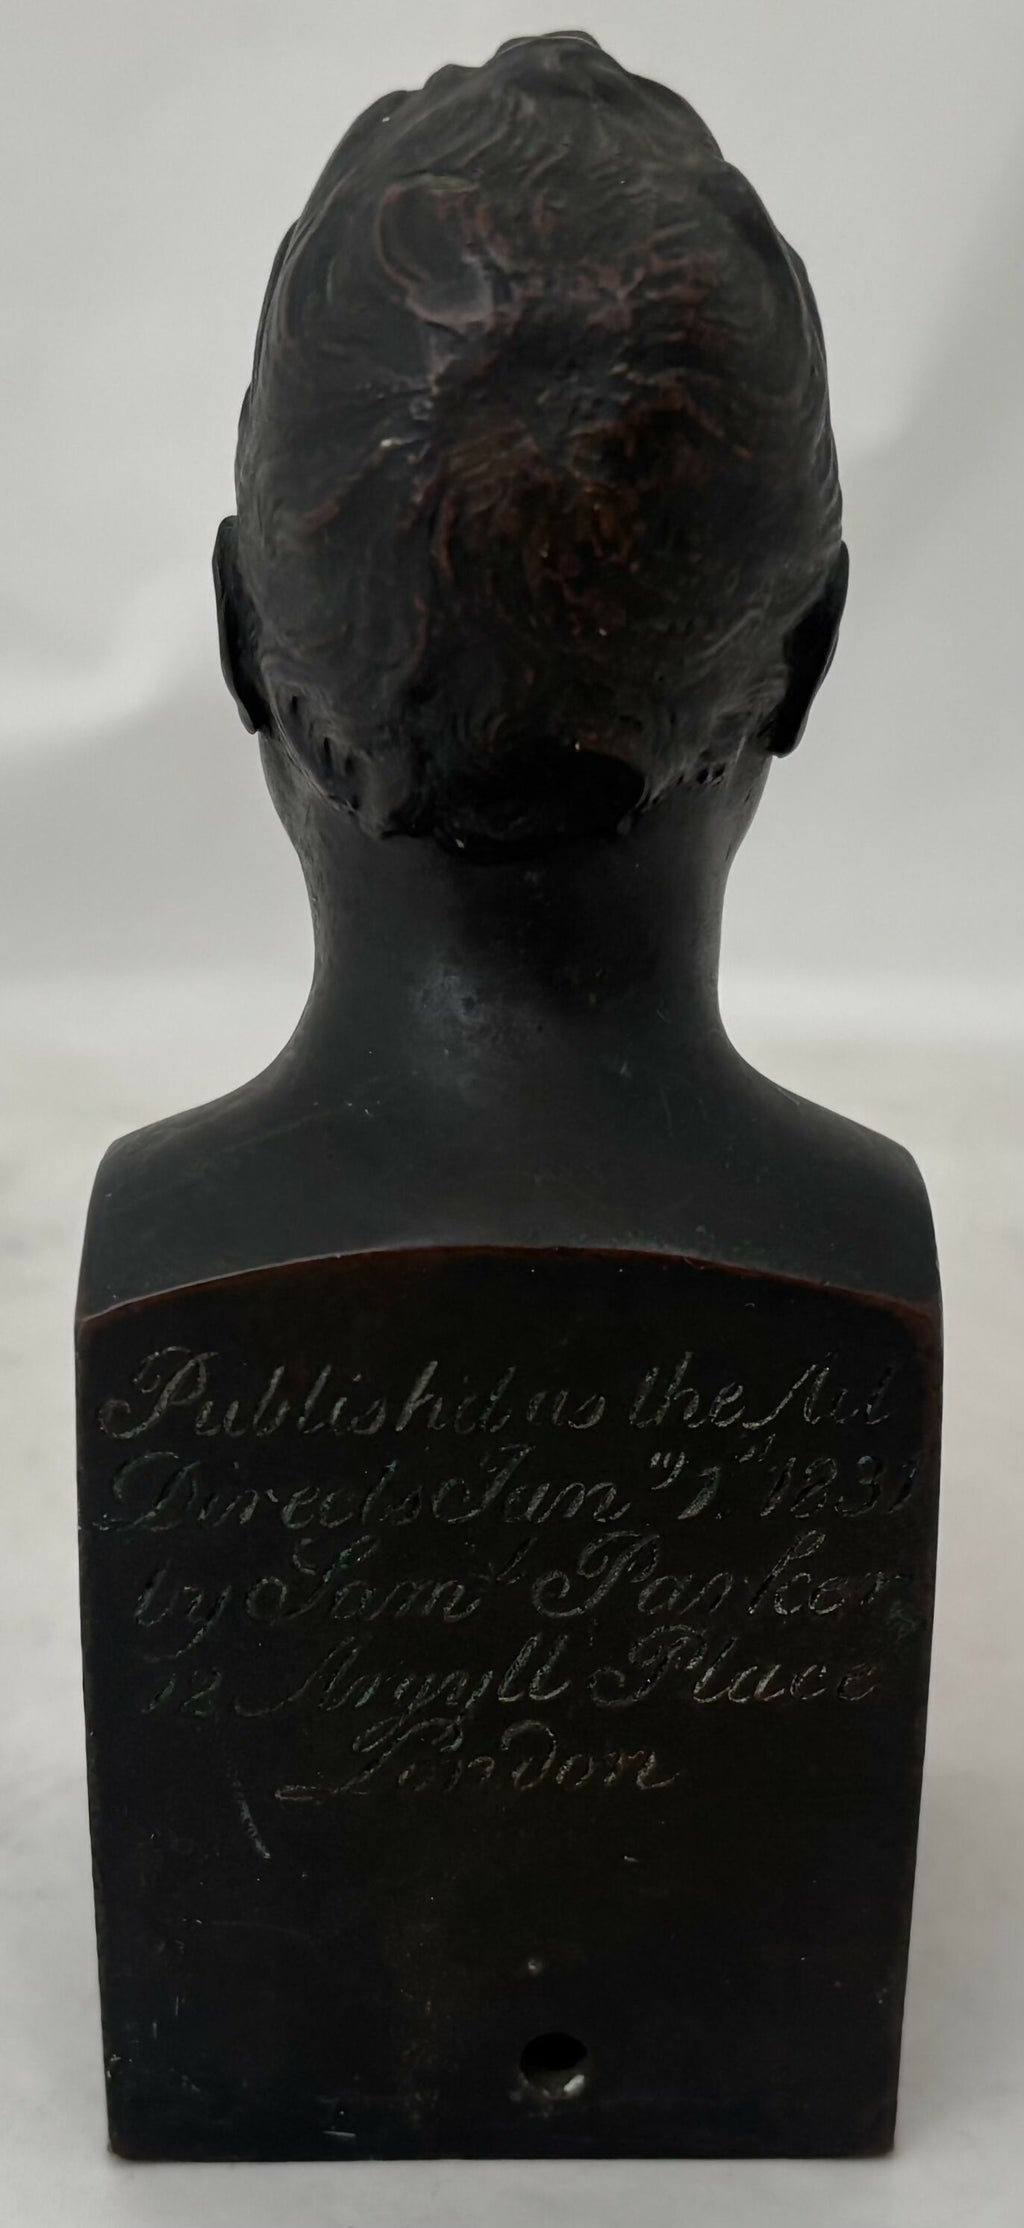 Publish'd as the Act
Directs Jany 1st 1831
by Saml Parker
12 Argyll Place
London